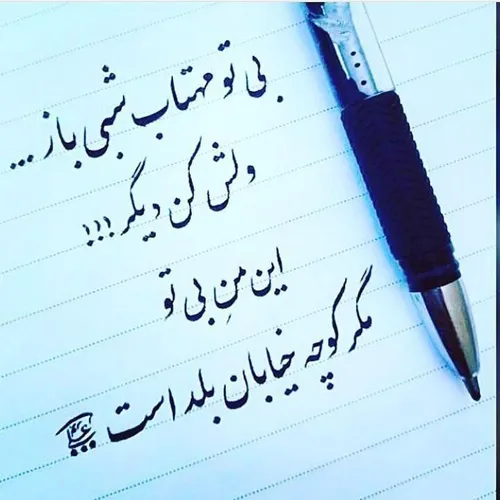 بی تو مهتاب شبی باز ...
ولش کن دیگر !!!
این منِ بی تو
مگر کوچه خیابان بلد است